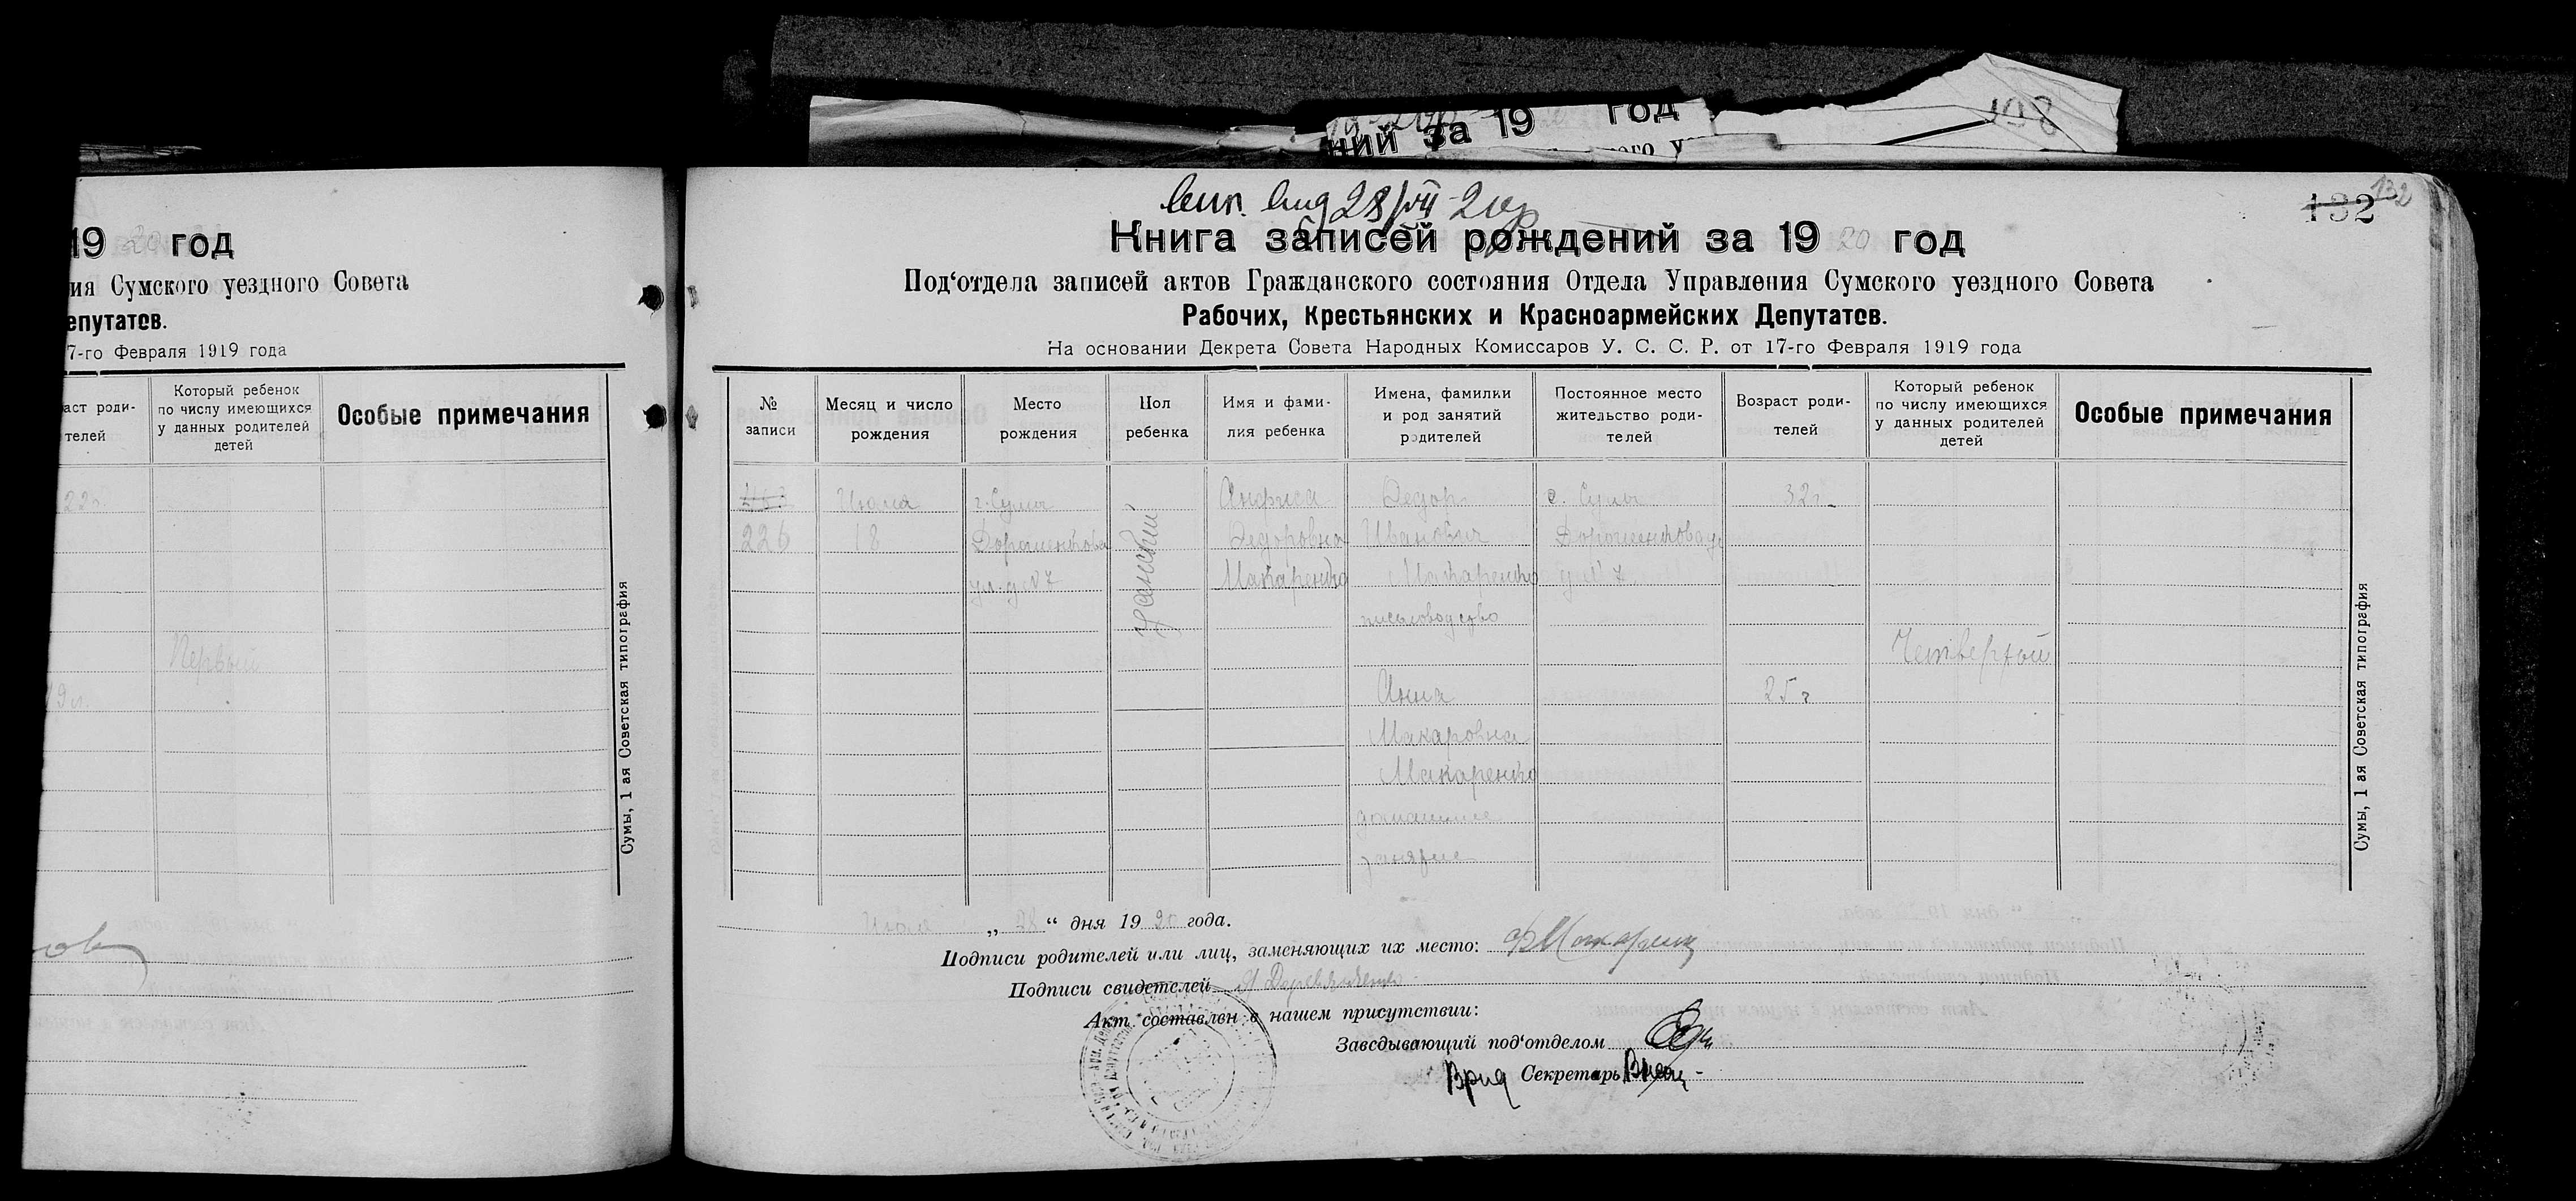 год
ний за 19
ого у
108
19 20 год
ия Сумского уездного Совета
епутатов.
7-го Февраля 1919 года
аст роди-
телей
Который ребенок
по числу имеющихся
у данных родителей
детей
Особые примечания
22г.
Первый
19л.
Сумы, 1 ая Советская типография
28/VII-20г
132
132
Книга записей рождений за 19 20 год
Под‘отдела записей актов Гражданского состояния Отдела Управления Сумского уездного Совета
Рабочих, Крестьянских и Красноармейских Депутатов.
На основании Декрета Совета Народных Комиссаров У. С. С. Р. от 17-го Февраля 1919 года
№
записи
Месяц и число
рождения
Место
рождения
Пол
ребенка
Имя и фами-
лия ребенка
Имена, фамилии
и род занятий
родителей
Постоянное место
жительство роди-
телей
Возраст роди-
телей
Который ребенок
по числу имеющихся
у данных родителей
детей
Особые примечания
226
Июля
18
г. Сумы
Дорошенкова
ул. д №7
женский
Анфиса
Федоровна
Макаренко
Федор
Иванович
Макаренко
письмоводство
Анна
Макаровна
Макаренко
домашние
занятие
г. Сумы
Дорошенкова ул
д № 7
32г.
25 г
Четвертой
Июля „ 28 “ дня 19 20 года.
Подписи родителей или лиц, заменяющих их место: Ф Макаренко
Подписи свидетелей А Деревянченко
Акт составлен в нашем присутствии:
Заведывающий под‘отделом
Врид Секретарь
Сумы, 1 ая Советская типография